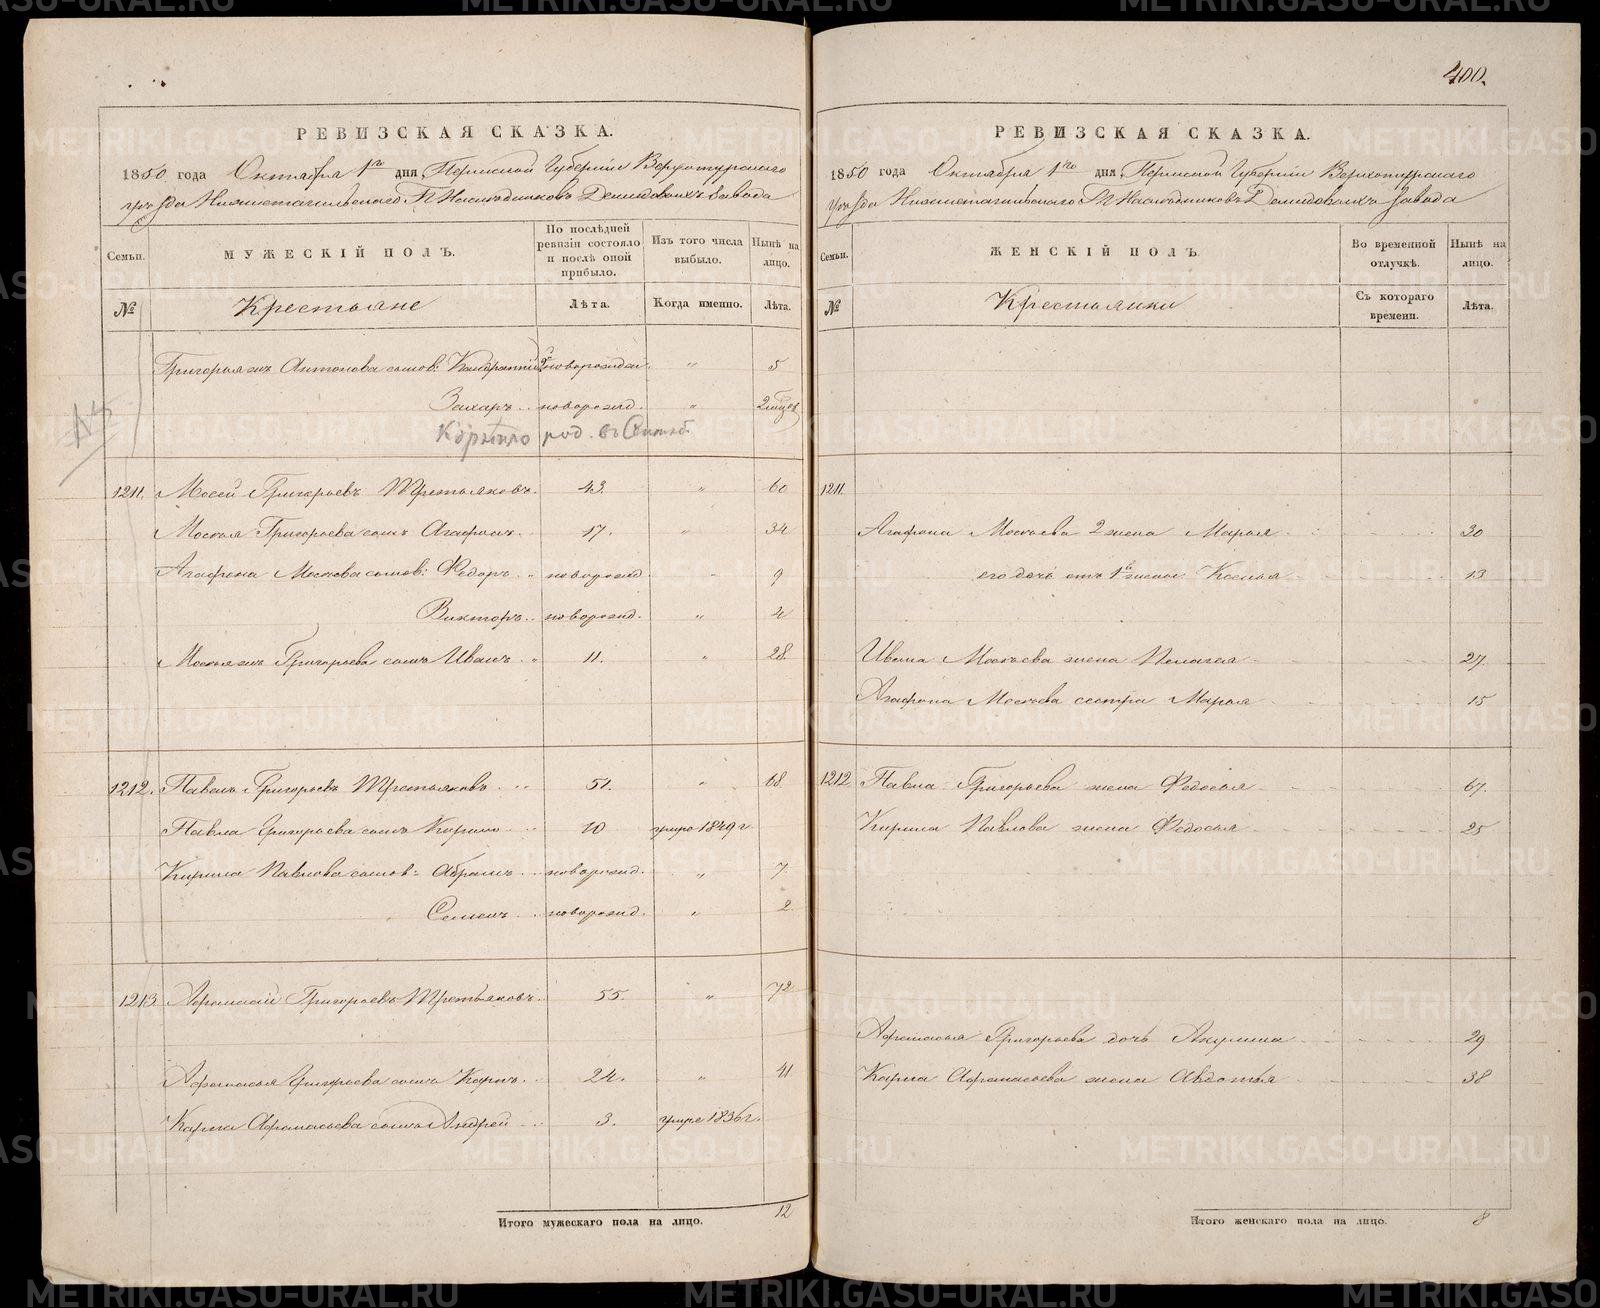 400.
РЕВИЗСКАЯ СКАЗКА.
1850 года Октября 1го дня, Пермской Губерніи Верхотурскаго
уѣзда Нижнетагильскаго Г.Г. Наслѣдниковъ Демидовыхъ завода
Семьи.
МУЖЕСКІЙ ПОЛЪ.
По послѣдней ревизіи состояло и послѣ оной прибыло.
Изъ того числа выбыло.
Нынѣ на лицо.
№
Крестьяне
Лѣта.
Когда именно.
Лѣта.
Григорья Антонова сынов: Кондратій новорожден. " 5
Захаръ .. новорожд. "
род. въ
1211. Мосей Григорьевъ Третьяковъ. 43. " 60
Мосѣя Григорьева сынъ Агафонъ. 17. " 34
Агафона Мосѣева сынов: Федоръ .. новорожд. " 9
Викторъ .. новорожд. " 4
Мосѣя Григорьева сынъ Иванъ .. 11. " 28.
1212. Павелъ Григорьевъ Третьяковъ .. 51. " 68.
Павла Григорьева сынъ Кирило .. 10 умре 1849 г
Кирила Павлова сынов: Абрамъ .. новорожд. " 7
Семенъ .. новорожд. " 2
1213 Афанасій Григорьевъ Третьяковъ .. 55. " 72
Афанасья Григорьева сынъ Карпъ .. 24. " 41
Карпа Афанасьева сынъ Андрей .. 3. умре 1836 г.
Итого мужескаго пола на лицо. 12
РЕВИЗСКАЯ СКАЗКА.
1850 года Октября 1го дня, Пермской Губерніи Верхотурскаго
уѣзда Нижнетагильскаго Г.Г. Наслѣдниковъ Демидовыхъ завода
Семьи.
ЖЕНСКІЙ ПОЛЪ.
Во временной отлучкѣ.
Нынѣ на лицо.
№
Крестьянки
Съ котораго времени.
Лѣта.
1211.
Агафона Мосѣева 2 жена Марья 30
его дочь отъ 1й жены Ксенья 13
Ивана Мосѣева жена Пелагея 27.
Агафона Мосѣева сестра Марья 15
1212 Павла Григорьева жена Федосья 67.
Кирила Павлова жена Федосья 25
Афанасья Григорьева дочь Акулина 29
Карпа Афанасьева жена Авдотья 38
Итого женскаго пола на лицо. 8
METRIKI.GASO-URAL.RU